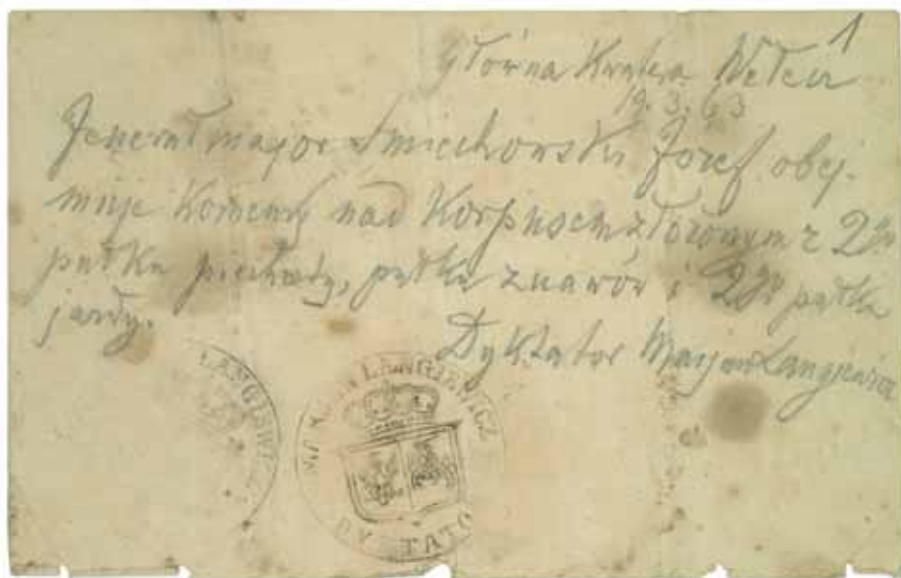 1
Główna Kwatera Wełecz
19. 3. 63
Jenerał major Śmiechowski Józef obej-
muje Komendę nad Korpusem złożonym z 2go
pułku piechoty, pułku żuawów i 2go pułku
jazdy.
Dyktator Marjan Langiewicz
LANGIEWICZ
MARJAN LANGIEWICZ
DYKTATOR